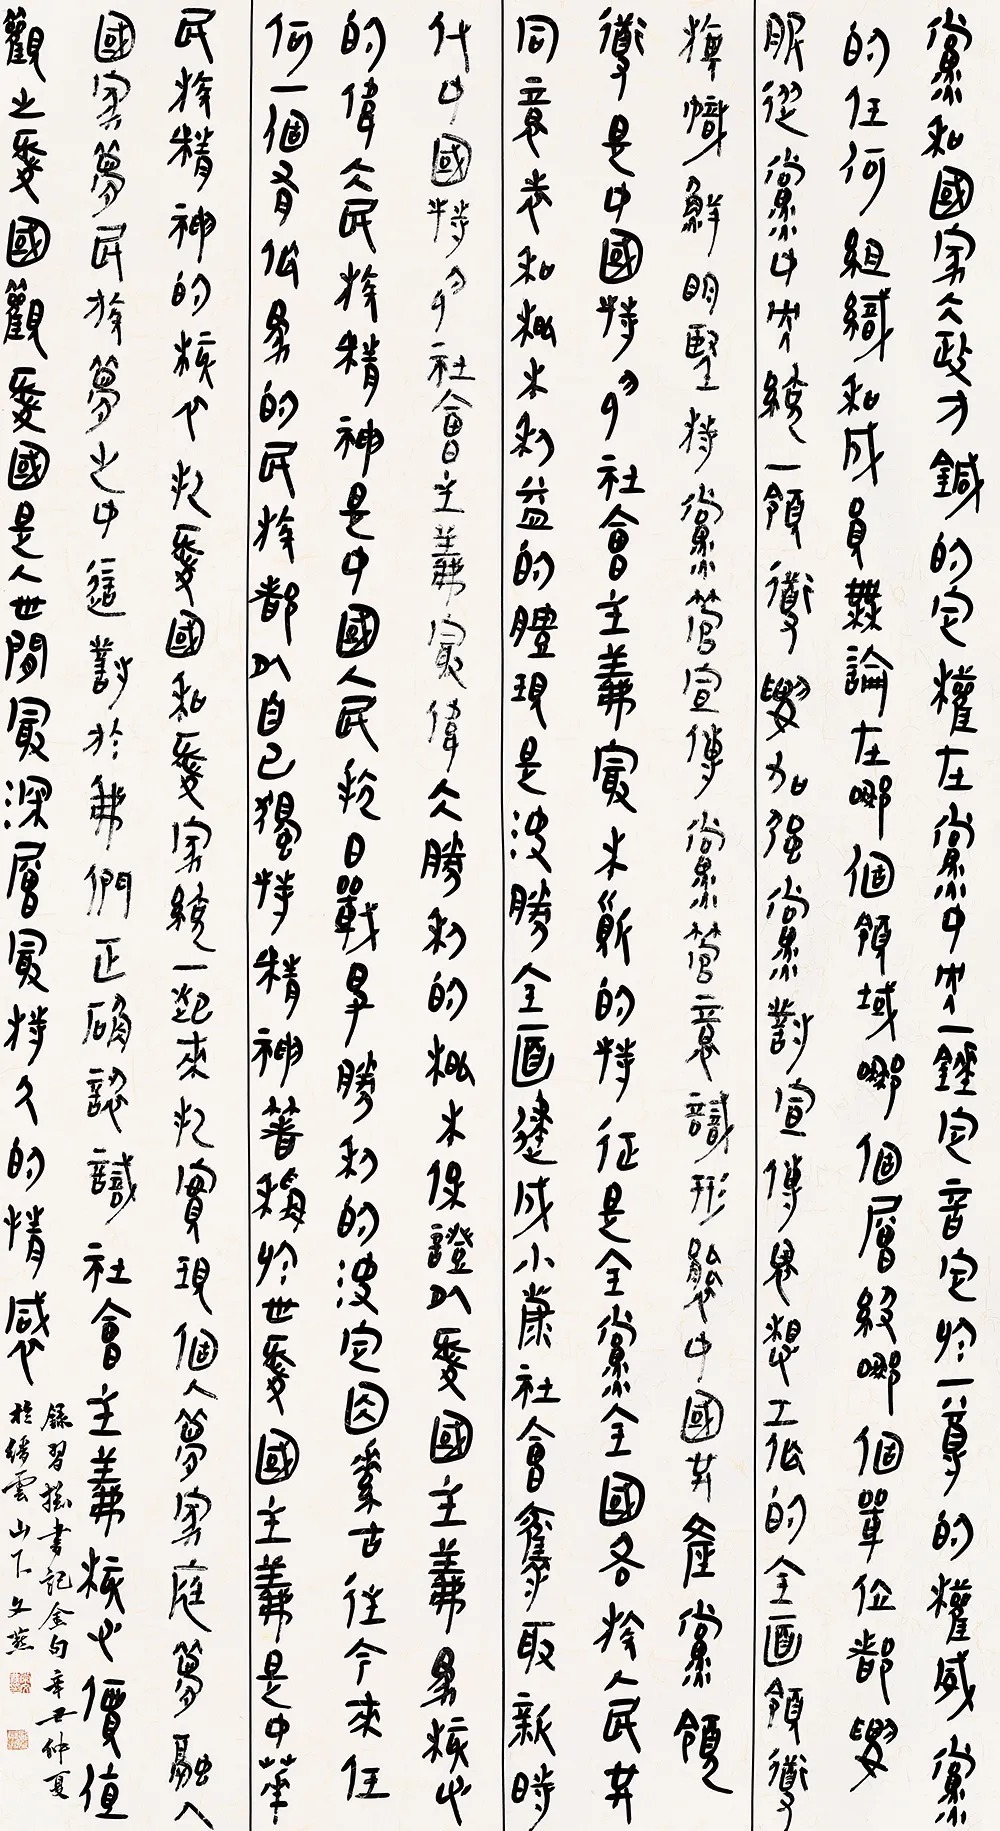 黨和國家大政方鍼的定權在黨中央一錘定音定於一尊的權威黨
的任何組織和成員無論在哪個領域哪個層級哪個單位都要
服從黨中央統一領導要加强黨對宣傳思想工作的全面領導
旗幟鮮明堅持黨管宣傳黨管意識形態中國共產黨領
導是中國特色社會主義最本質的特征是全黨全國各族人民共
同意志和根本利益的體現是決勝全面建成小康社會奪取新時
代中國特色社會主義最偉大勝利的根本保證以愛國主義爲核心
的偉大民族精神是中國人民抗日戰爭勝利的決定因素古往今來任
何一個有作爲的民族都以自己獨特精神著稱於世愛國主義是中華
民族精神的核心把愛國和愛家統一起來把實現個人夢家庭夢融入
國家夢民族夢之中這對於我們正確認識社會主義核心價值
觀之愛國觀愛國是人世間最深層最持久的情感
錄習總書記金句辛丑仲夏
於縉雲山下文燕